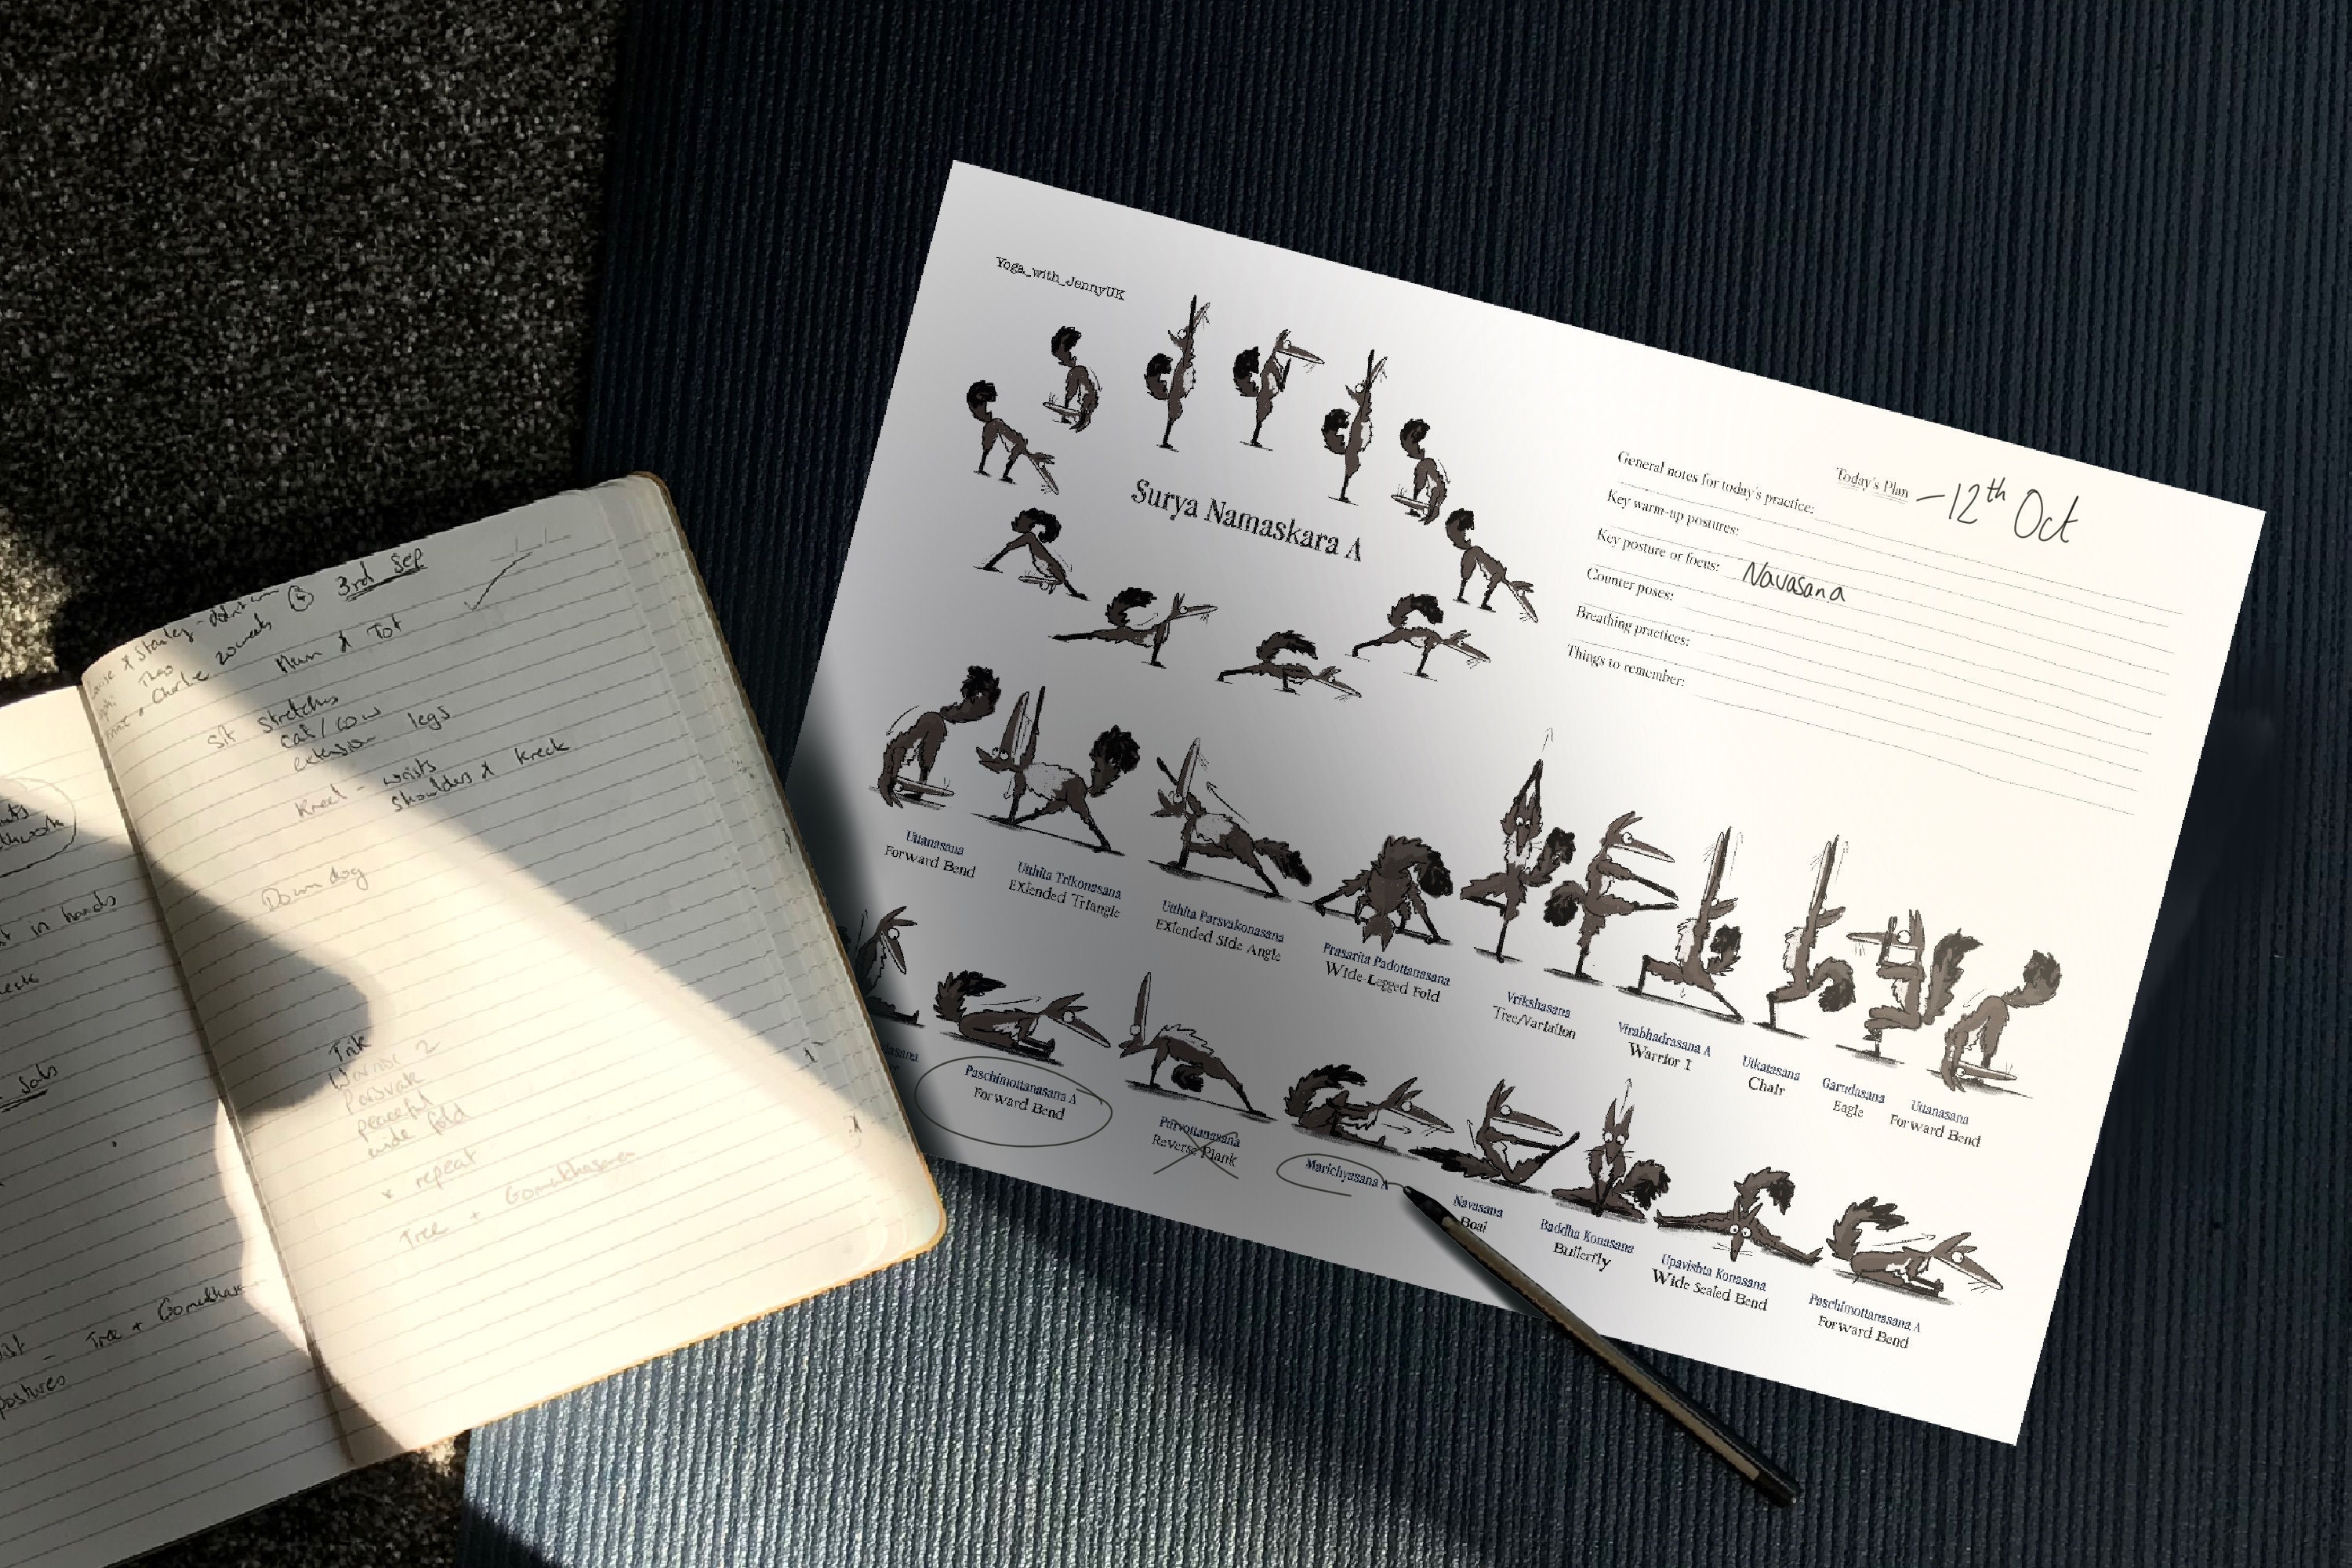 3rd Sep
Mum & Tot
Theo
+ Charlie 20 weeks
Sit stretches
cat/cow
extension legs
Kneel - wrists
shoulders &
Down dog
Trik
Warrior 2
Parsvak
peaceful
wide fold
repeat
Tree + Gomukhasana
in hands
Tree + Gomukhas
postures
Yoga_with_JennyUK
Surya Namaskara A
Today's Plan - 12th Oct
General notes for today's practice:
Key warm-up postures:
Key posture or focus: Navasana
Counter poses:
Breathing practices:
Things to remember:
Uttanasana
Forward Bend
Utthita Trikonasana
Extended Triangle
Utthita Parsvakonasana
Extended Side Angle
Prasarita Padottanasana
Wide-Legged Fold
Vrikshasana
Tree/Variation
Virabhadrasana A
Warrior I
Utkatasana
Chair
Garudasana
Eagle
Uttanasana
Forward Bend
Paschimottanasana A
Forward Bend
Purvottanasana
Reverse Plank
Marichyasana A
Navasana
Boat
Baddha Konasana
Butterfly
Upavishta Konasana
Wide Sealed Bend
Paschimottanasana A
Forward Bend